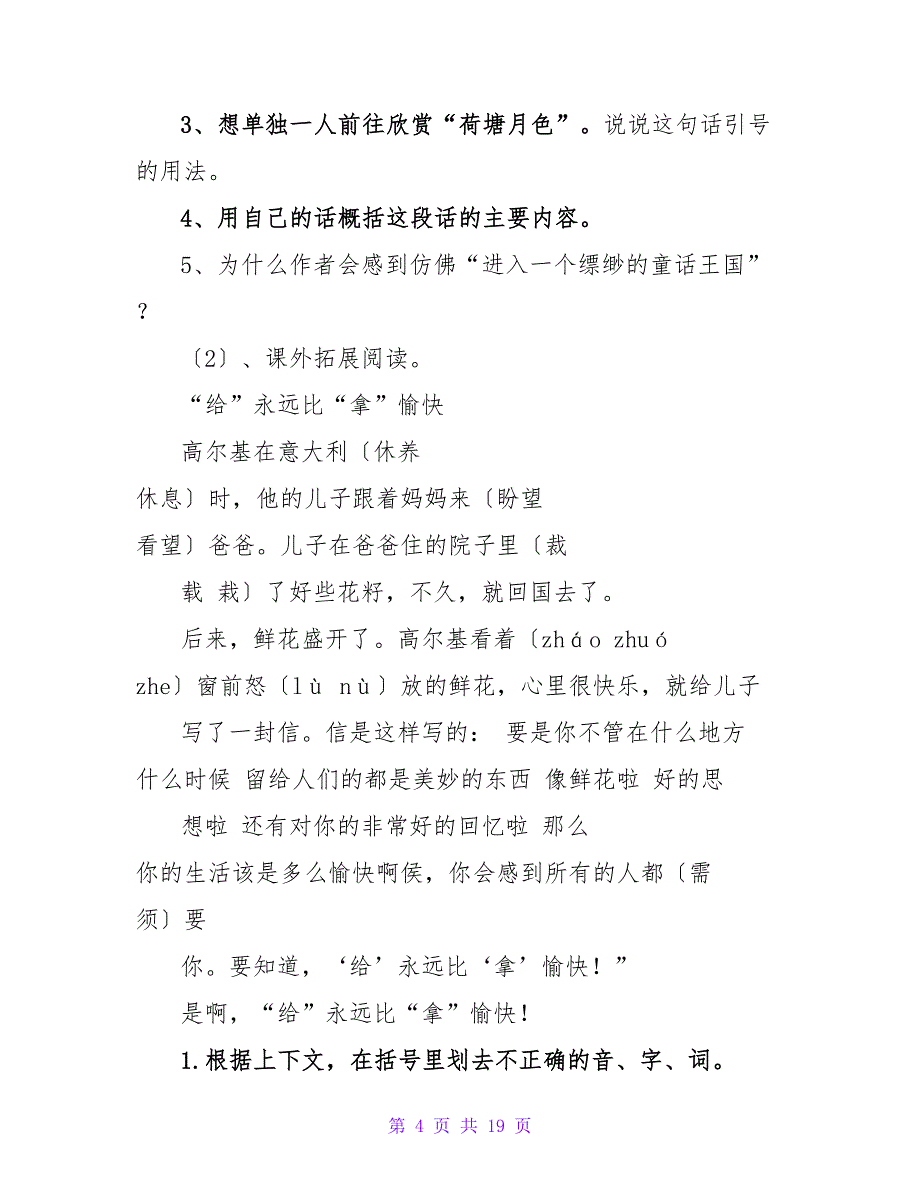 3、想单独一人前往欣赏“荷塘月色”。说说这句话引号
的用法。
4、用自己的话概括这段话的主要内容。
5、为什么作者会感到仿佛“进入一个缥缈的童话王国”
?
〔2〕、课外拓展阅读。
“给”永远比“拿”愉快
高尔基在意大利〔休养
休息〕时，他的儿子跟着妈妈来〔盼望
看望〕爸爸。儿子在爸爸住的院子里〔裁
载 栽〕了好些花籽，不久，就回国去了。
后来，鲜花盛开了。高尔基看着〔zháo zhuó
zhe〕窗前怒〔lù nù〕放的鲜花，心里很快乐，就给儿子
写了一封信。信是这样写的： 要是你不管在什么地方
什么时候 留给人们的都是美妙的东西 像鲜花啦 好的思
想啦 还有对你的非常好的回忆啦 那么
你的生活该是多么愉快啊侯，你会感到所有的人都〔需
须〕要
你。要知道，‘给’永远比‘拿’愉快！”
是啊，“给”永远比“拿”愉快！
1.根据上下文，在括号里划去不正确的音、字、词。
第 4 页 共 19 页